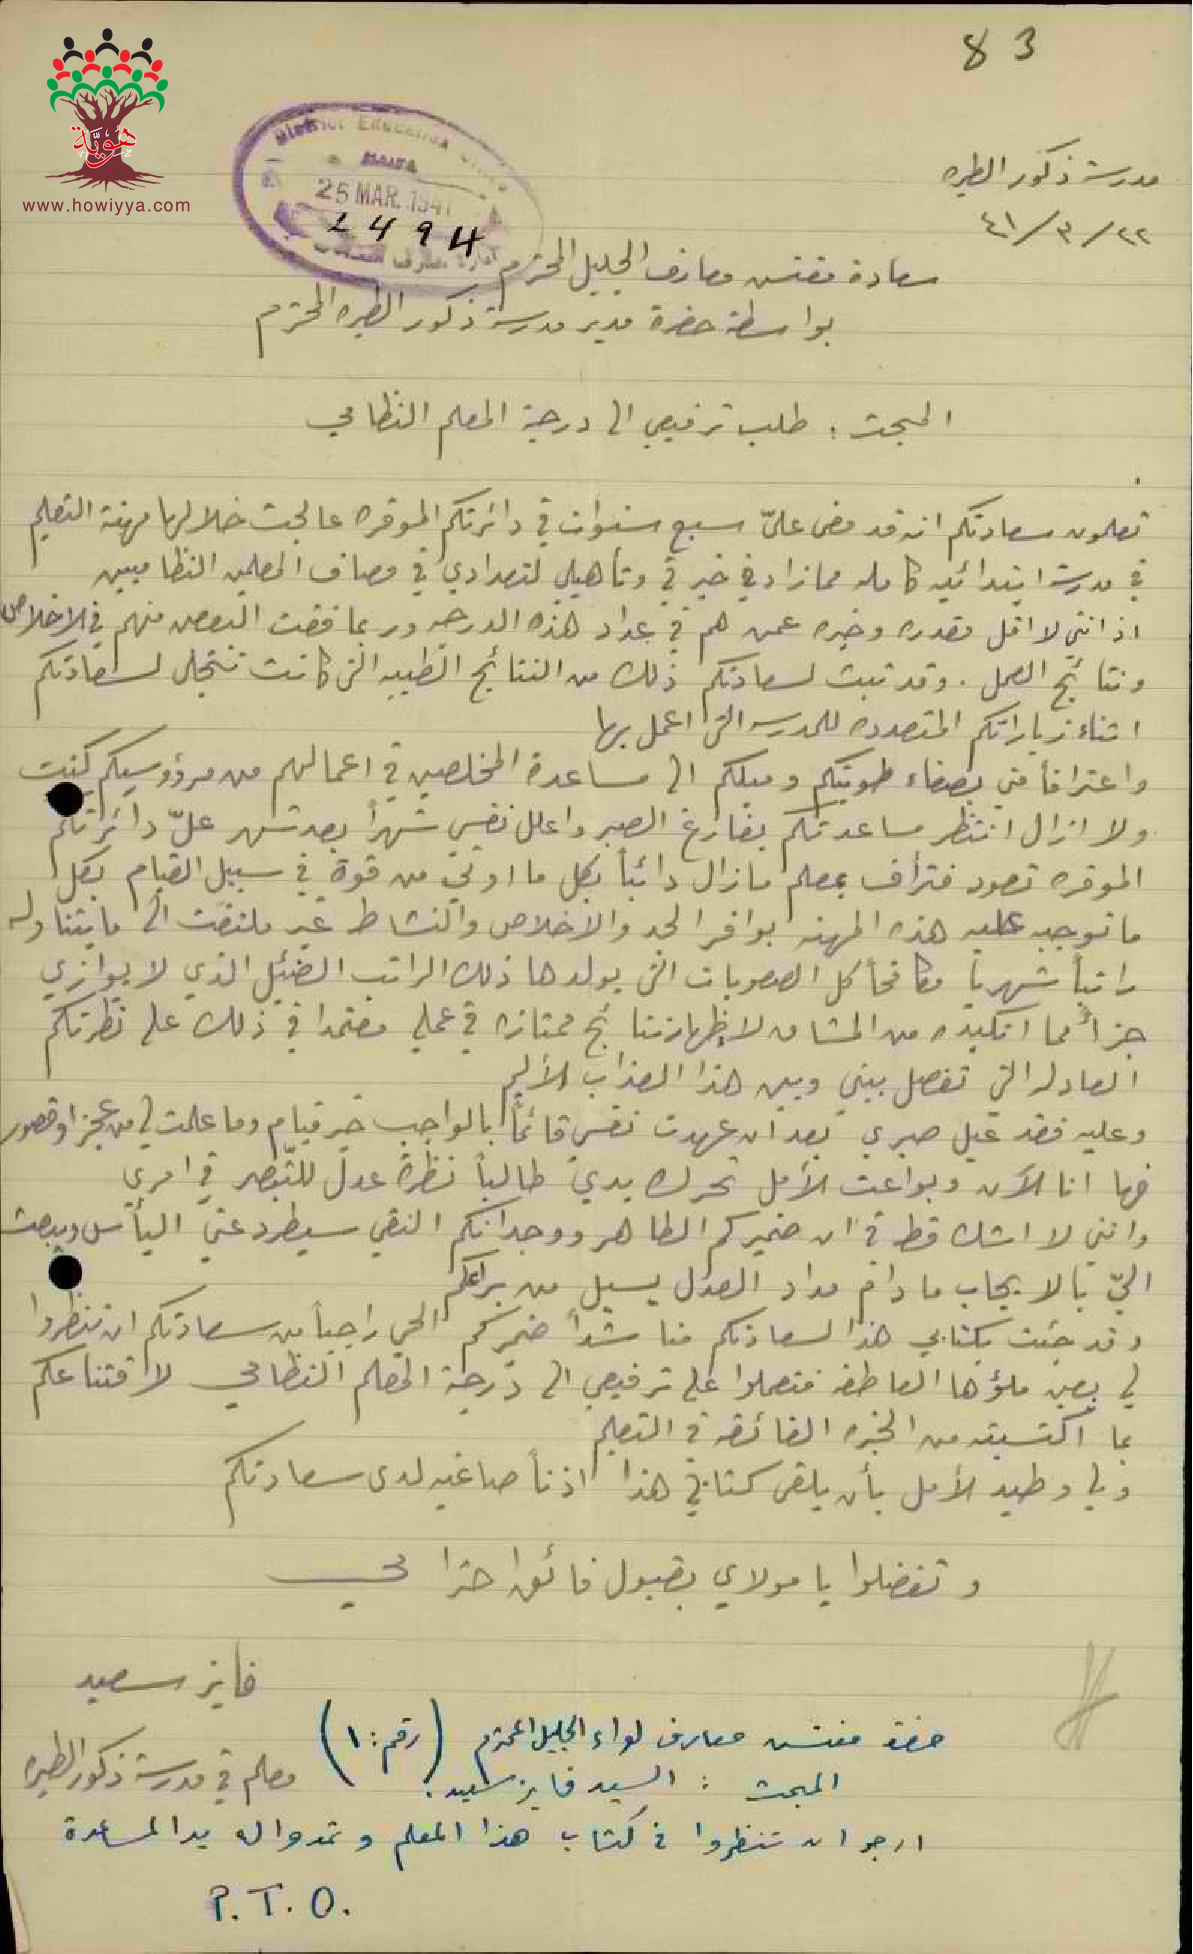 83
هوية
www.howiyya.com
District Education Office
HAIFA
25 MAR. 1941
2494
مدرسة ذكور الطيره
٢٢/٣/٤١
سعادة مفتش معارف الجليل المحترم
بواسطة حضرة مدير مدرسة ذكور الطيره المحترم
المبحث : طلب ترفيعي الى درجة المعلم النظامي
تعلمون سعادتكم انه قد مضى عليّ سبع سنوات في دائرتكم الموقره عالجت خلالها مهنة التعليم
في مدرسة ابتدائيه كامله مما زاد في خبرتي وتأهيلي لتعدادي في مصاف المعلمين النظاميين
اذ انني لا اقل مقدره وخبره عمن هم في عداد هذه الدرجه وربما فقت البعض منهم في الاخلاص
ونتائج العمل . وقد تبت لسعادتكم ذلك من النتائج الطيبه التي كانت تتجلى لسعادتكم
اثناء زياراتكم المتعدده للمدرسه التي اعمل بها
واعترافاً مني بصفاء طويتكم وميلكم الى مساعدة المخلصين في اعمالهم من مرؤوسيكم كنت
ولا ازال انتظر مساعدتكم بفارغ الصبر واعلل نفسي شهراً بعد شهر علّ دائرتكم
الموقره تعود فترأف بمعلم ما زال دائباً بكل ما اوتي من قوة في سبيل القيام بكل
ما توجبه عليه هذه المهنه بوافر الجد والاخلاص والنشاط غير ملتفت الى ما يتناوله
راتباً شهرياً مكافحاً كل الصعوبات التي يولدها ذلك الراتب الضئيل الذي لا يوازي
جزأً مما اتكبده من المشاق لاظهار نتائج ممتازه في عملي معتمدا في ذلك على نظرتكم
العادله التي تفصل بيني وبين هذا العذاب الأليم
وعليه فقد عيل صبري بعد ان عهدت نفسي قائماً بالواجب خير قيام وما علمت لي من عجز او قصور
فها انا الآن وبواعث الأمل تحرك يدي طالباً نظرة عدل للتبصر في امري
وانني لا اشك قط في ان ضميركم الطاهر ووجدانكم النقي سيطرد عني اليأس ويبعث
اليّ بالايجاب ما دام مداد العدل يسيل من يراعكم
وقد جئت بكتابي هذا لسعادتكم مناشداً ضميركم الحي راجياً من سعادتكم ان تنظروا
لي بعين ملؤها العاطفه فتعملوا على ترفيعي الى درجة المعلم النظامي لاقتناعكم
بما اكتسبته من الخبره الفائقه في التعليم
ولي وطيد الأمل بأن يلقى كتابي هذا اذناً صاغيه لدى سعادتكم
وتفضلوا يا مولاي بقبول فائق احترامي
فايز سعيد
معلم في مدرسة ذكور الطيره
حضرة مفتش معارف لواء الجليل المحترم (رقم: ١)
المبحث : السيد فايز سعيد .
ارجو ان تنظروا في كتاب هذا المعلم وتمدوا له يد المساعدة
P.T.O.